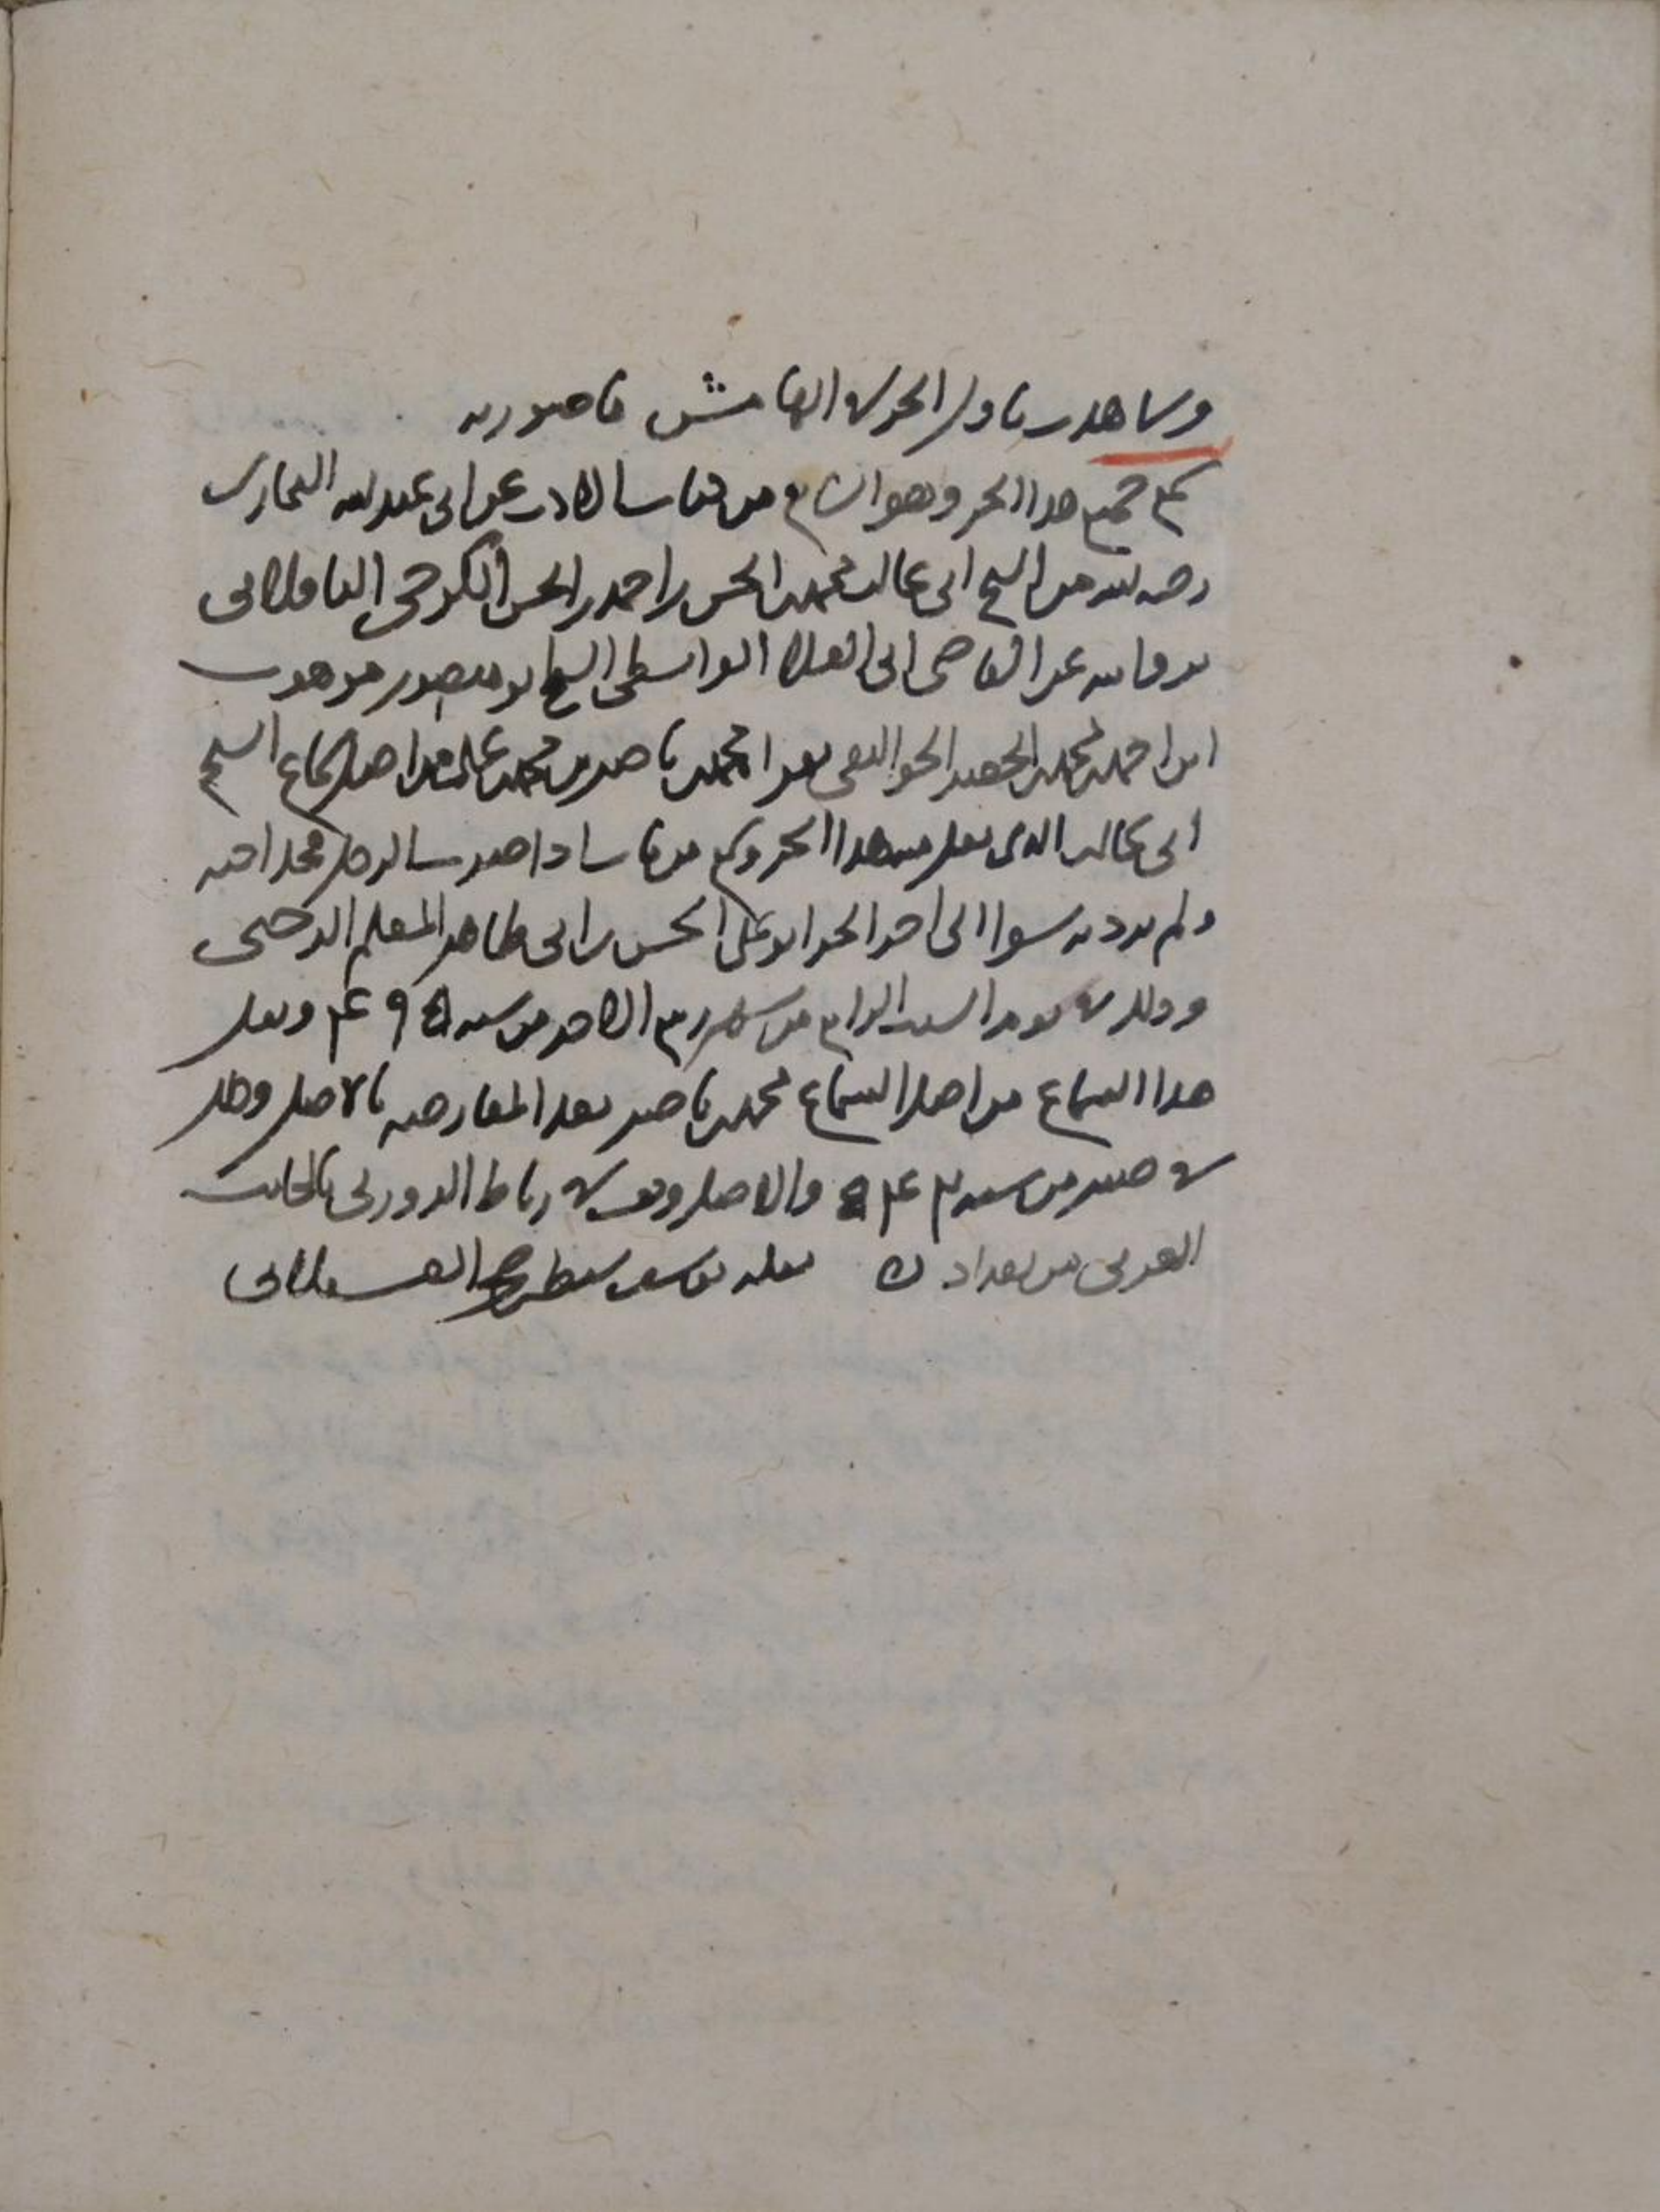 وشاهدت باول الجزء في الهامش ما صورته
سمع جميع هذا الجزو وهو السابع من كتاب الادب عن ابي عبد الله البخاري
رضه الله من الشيخ ابي غالب محمد بن الحسن بن احمد بن الحسن الكرخي الباقلاني
بروايته عن القاضي ابي العلا الواسطي الشيخ ابو منصور موهوب
ابن احمد بن محمد بن الخضر الجواليقي بقراة محمد بن ناصر بن محمد بن علي من اصل سماع الشيخ
ابي غالب الذي نقل منه هذا الجزو وسمع من باب اذا ضرب الرجل فخذ اخيه
ولم يرد به سوا الى اخر الجزء ابو علي الحسن بن ابي طاهر المعلم الرخجي
وذلك في يوم السبت الرابع من شهر ربيع الاخر من سنه ٤٩ ونقل
هذا السماع من اصل السماع محمد بن ناصر بعد المعارضه بالاصل وذلك
في صفر من سنه ٥٤٣ والاصل وقف في رباط الزوزني بالجانب
الغربي من بغداد ن نقله يوسف سبط بن حجر العسقلاني